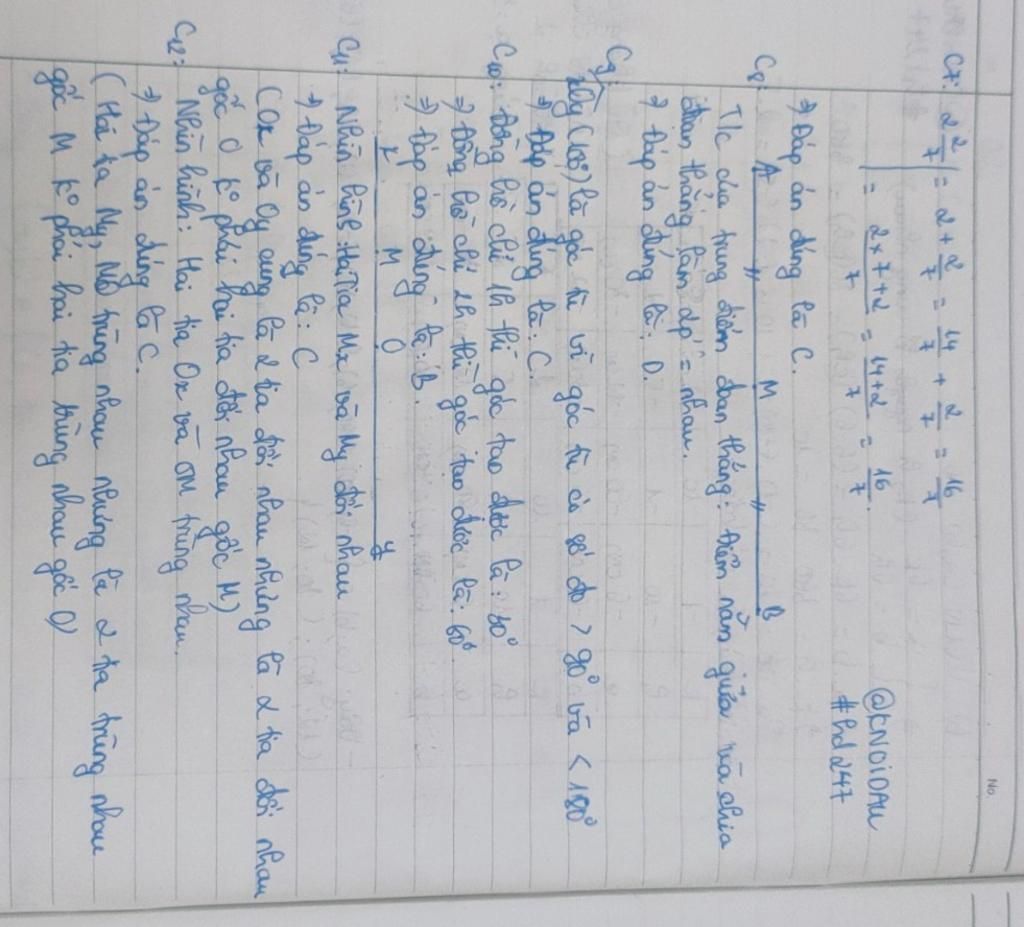 No.
C7: 2 2/7 = 2 + 2/7 = 14/7 + 2/7 = 16/7
= 2 x 7 + 2 / 7 = 14 + 2 / 7 = 16/7.
@KNOiDAU
#hd247
⇒ Đáp án đúng là C.
C8: A M B
T/c của trung điểm đoạn thẳng: Điểm nằm giữa và chia
đoạn thẳng làm 2p = nhau.
⇒ Đáp án đúng là: D.
C9: (100°) là góc tù vì góc tù có số đo > 90° và < 180°
⇒ Đáp án đúng là: C.
C10: Đồng hồ chỉ 1h thì góc tạo được là: 30°
⇒ Đồng hồ chỉ 2h thì góc tạo được là: 60°.
⇒ Đáp án đúng là: B.
x M O y
C11: Nhìn hình: Hai tia Mx và My đối nhau
⇒ Đáp án đúng là: C
(Ox và Oy cung là 2 tia đối nhau nhưng là 2 tia đối nhau
gốc O ko phải hai tia đối nhau gốc M)
C12: Nhìn hình: Hai tia Ox và OM trùng nhau.
⇒ Đáp án đúng là C.
(Hai tia My, MO trùng nhau nhưng là 2 tia trùng nhau
gốc M ko phải hai tia trùng nhau gốc O)